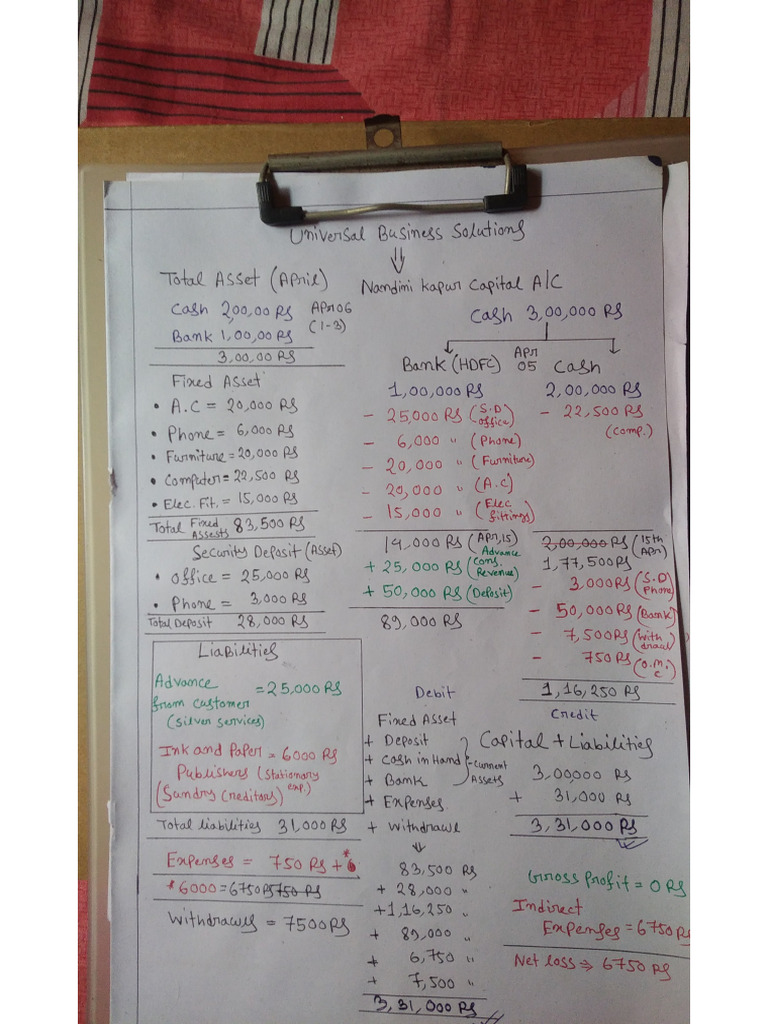 Universal Business Solutions
⇓
Total Asset (April)
Cash 2,00,00 RS
Bank 1,00,00 RS
APR 06
(1-3)
3,00,00 RS
Fixed Asset
• A.C = 20,000 RS
• Phone = 6,000 RS
• Furniture = 20,000 RS
• Computer = 22,500 RS
• Elec. Fit. = 15,000 RS
Total Fixed Assests 83,500 RS
Security Deposit (Asset)
• office = 25,000 RS
• Phone = 3,000 RS
Total Deposit 28,000 RS
Liabilities
Advance
from customer = 25,000 RS
(silver services)
Ink and Paper = 6000 RS
Publishers (stationary exp.)
(Sundry Creditors)
Total liabilities 31,000 RS
Expenses = 750 RS + *6
*6000 = 6750 RS 5750 RS
Withdrawls = 7500 RS
Nandini Kapur Capital A/C
Cash 3,00,000 RS
Bank (HDFC) APR 05 Cash
1,00,000 RS
- 25,000 RS (S.D office)
- 6,000 " (Phone)
- 20,000 " (Furniture)
- 20,000 " (A.C)
- 15,000 " (Elec fittings)
14,000 RS (APR,15)
+ 25,000 RS (Advance Cons. Revenue)
+ 50,000 RS (Deposit)
89,000 RS
2,00,000 RS
- 22,500 RS
(Comp.)
2,00,000 RS (15th Apr)
1,77,500 RS
- 3,000 RS (S.D Phone)
- 50,000 RS (Bank)
- 7,500 RS (with drawl)
- 750 RS (O.M.C)
1,16,250 RS
Debit
Fixed Asset
+ Deposit
+ Cash in Hand
+ Bank
- Current Assets
+ Expenses
+ Withdrawl
↓
83,500 RS
+ 28,000 "
+ 1,16,250 "
+ 89,000 "
+ 6,750 "
+ 7,500 "
3,31,000 RS
Credit
Capital + Liabilities
3,00,000 RS
+ 31,000 RS
3,31,000 RS
Gross Profit = 0 RS
Indirect
Expenses = 6750 RS
Net loss ⇒ 6750 RS